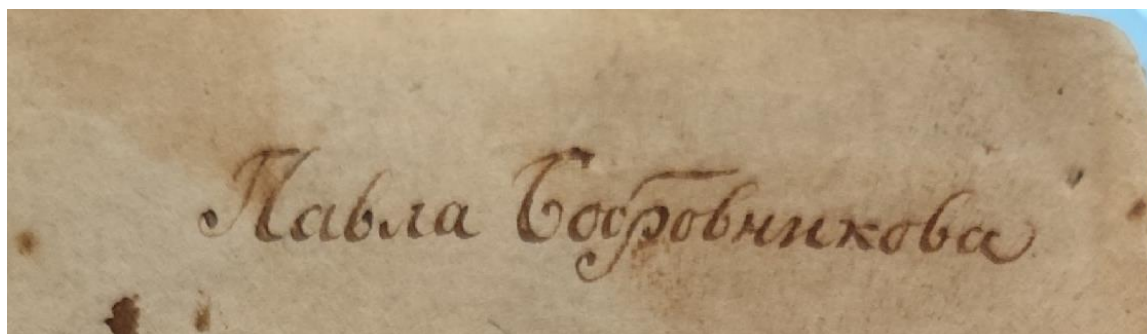 Павла Бобровникова